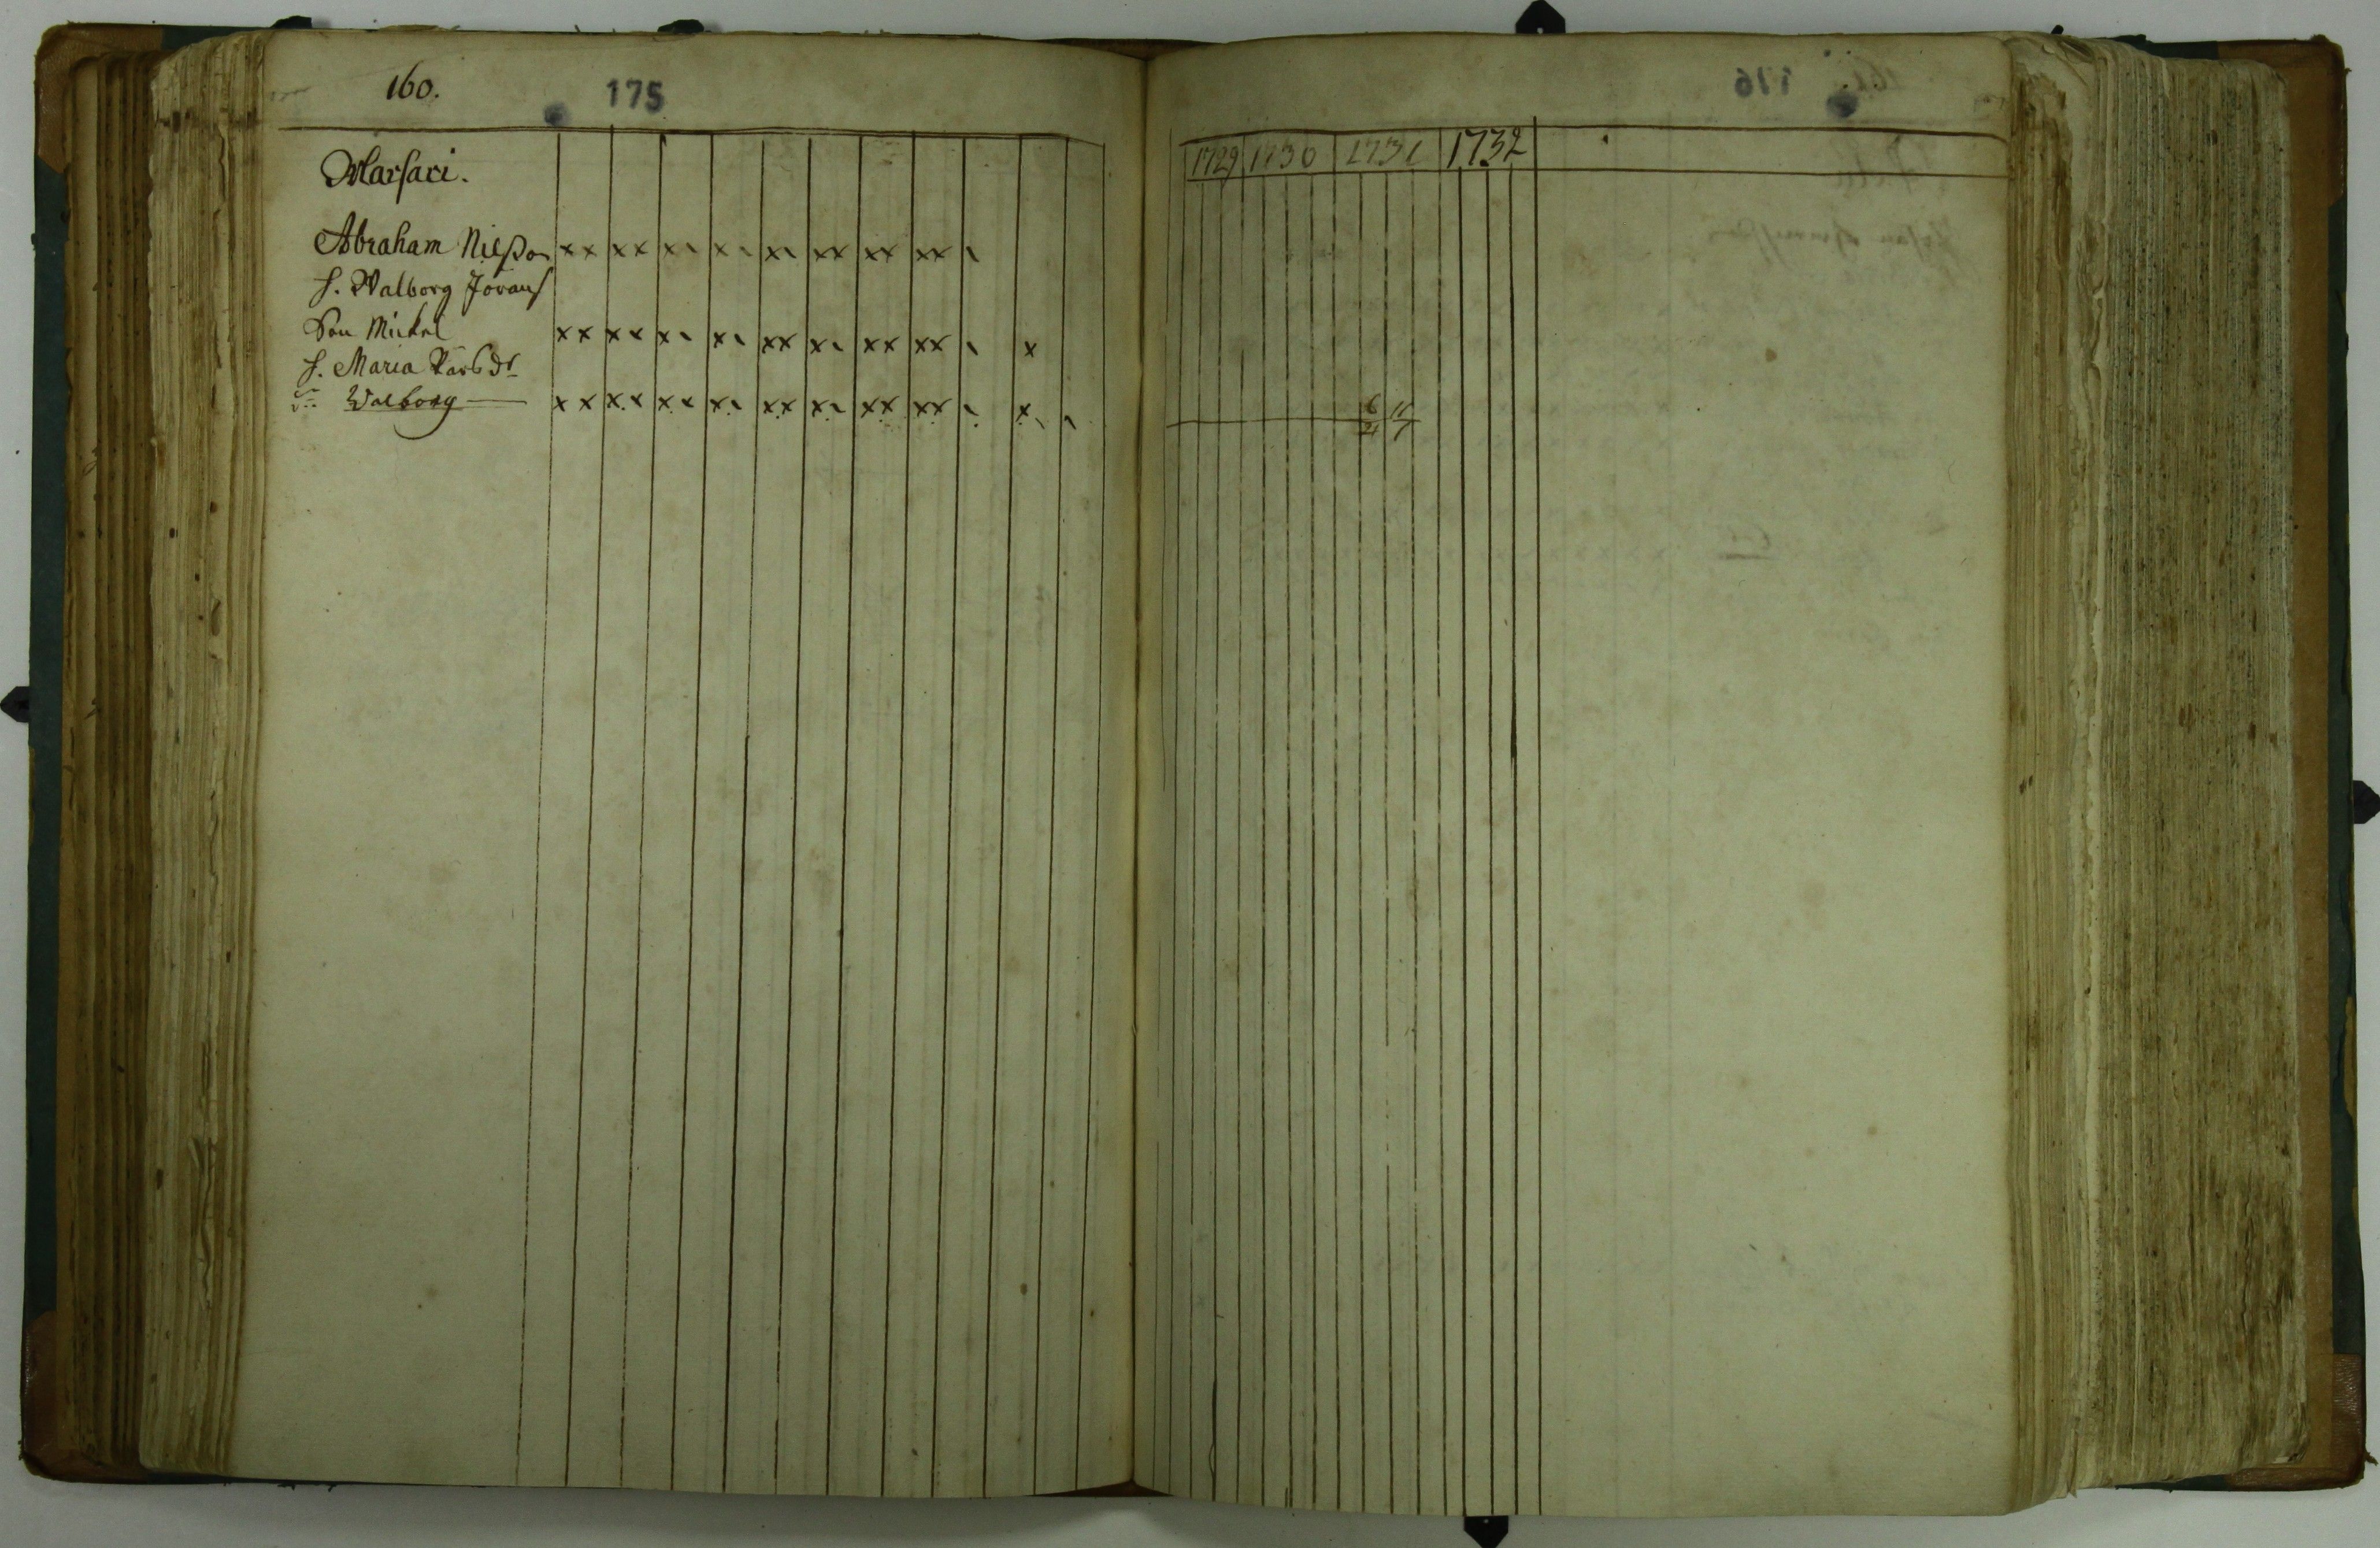 160. 175
Marsari.
Abraham Nilsson x x x x x ⸌ x ⸌ x ⸌ xx xx xx ⸌
h. Walborg Jörans
Son Mickel x x x x x ⸌ x ⸌ xx x ⸌ xx xx ⸌ x
h. Maria
Walborg x x x x x x x ⸌ xx x ⸌ xx xx ⸌ x ⸌ ⸌
1729 1730 1731 1732
6 11
21 7